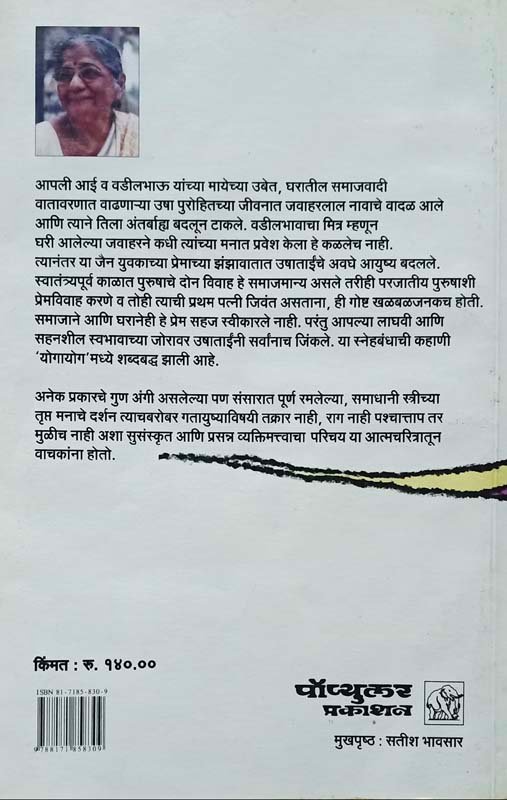 आपली आई व वडीलभाऊ यांच्या मायेच्या उबेत, घरातील समाजवादी
वातावरणात वाढणाऱ्या उषा पुरोहितच्या जीवनात जवाहरलाल नावाचे वादळ आले
आणि त्याने तिला अंतर्बाह्य बदलून टाकले. वडीलभावाचा मित्र म्हणून
घरी आलेल्या जवाहरने कधी त्यांच्या मनात प्रवेश केला हे कळलेच नाही.
त्यानंतर या जैन युवकाच्या प्रेमाच्या झंझावातात उषाताईंचे अवघे आयुष्य बदलले.
स्वातंत्र्यपूर्व काळात पुरुषाचे दोन विवाह हे समाजमान्य असले तरीही परजातीय पुरुषाशी
प्रेमविवाह करणे व तोही त्याची प्रथम पत्नी जिवंत असताना, ही गोष्ट खळबळजनकच होती.
समाजाने आणि घरानेही हे प्रेम सहज स्वीकारले नाही. परंतु आपल्या लाघवी आणि
सहनशील स्वभावाच्या जोरावर उषाताईंनी सर्वांनाच जिंकले. या स्नेहबंधाची कहाणी
‘योगायोग’मध्ये शब्दबद्ध झाली आहे.
अनेक प्रकारचे गुण अंगी असलेल्या पण संसारात पूर्ण रमलेल्या, समाधानी स्त्रीच्या
तृप्त मनाचे दर्शन त्याचबरोबर गतायुष्याविषयी तक्रार नाही, राग नाही पश्चात्ताप तर
मुळीच नाही अशा सुसंस्कृत आणि प्रसन्न व्यक्तिमत्त्वाचा परिचय या आत्मचरित्रातून
वाचकांना होतो.
किंमत : रु. १४०.००
ISBN 81-7185-830-9
9788171858309
पॉप्युलर
प्रकाशन
मुखपृष्ठ : सतीश भावसार